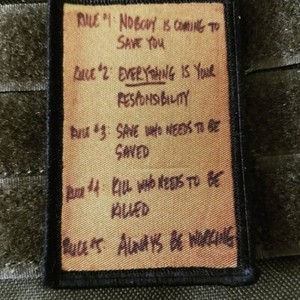 RULE #1: NOBODY IS COMING TO
SAVE YOU
RULE #2: EVERYTHING IS YOUR
RESPONSIBILITY
RULE #3: SAVE WHO NEEDS TO BE
SAVED
RULE #4: KILL WHO NEEDS TO BE
KILLED
RULE #5: ALWAYS BE WORKING